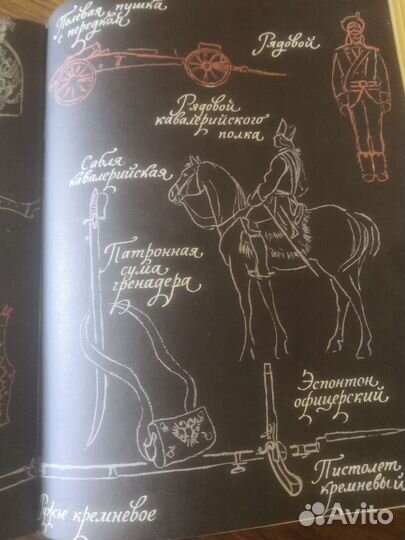 Полевая пушка
с передком
Рядовой
Рядовой
кавалерийского
полка
Сабля
кавалерийская
Патронная
сума
гренадера
Эспонтон
офицерский
Пистолет
кремневый
Ружье кремневое
Avito